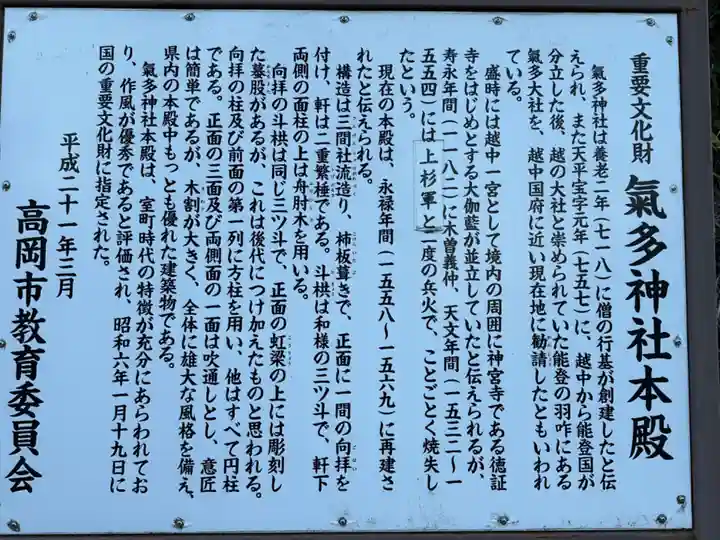 重要文化財 氣多神社本殿
氣多神社は養老二年（七一八）に僧の行基が創建したと伝
えられ、また天平宝字元年（七五七）に、越中から能登国が
分立した後、越の大社と崇められていた能登の羽咋にある
氣多大社を、越中国府に近い現在地に勧請したともいわれ
ている。
盛時には越中一宮として境内の周囲に神宮寺である徳証
寺をはじめとする大伽藍が並立していたと伝えられるが、
寿永年間（一一八二）に木曽義仲、天文年間（一五三二～一
五五四）には上杉軍と二度の兵火で、ことごとく焼失し
たという。
現在の本殿は、永禄年間（一五五八～一五六九）に再建さ
れたと伝えられる。
構造は三間社流造り、柿板葺きで、正面に一間の向拝を
付け、軒は二重繁棰である。斗栱は和様の三ツ斗で、軒下
両側の面柱の上は舟肘木を用いる。
向拝の斗栱は同じ三ツ斗で、正面の虹梁の上には彫刻し
た蟇股があるが、これは後代につけ加えたものと思われる。
向拝の柱及び前面の第一列に方柱を用い、他はすべて円柱
である。正面の三面及び両側面の一面は吹通しとし、意匠
は簡単であるが、木割が大きく、全体に雄大な風格を備え、
県内の本殿中もっとも優れた建築物である。
氣多神社本殿は、室町時代の特徴が充分にあらわれてお
り、作風が優秀であると評価され、昭和六年一月十九日に
国の重要文化財に指定された。
平成二十一年三月
高岡市教育委員会